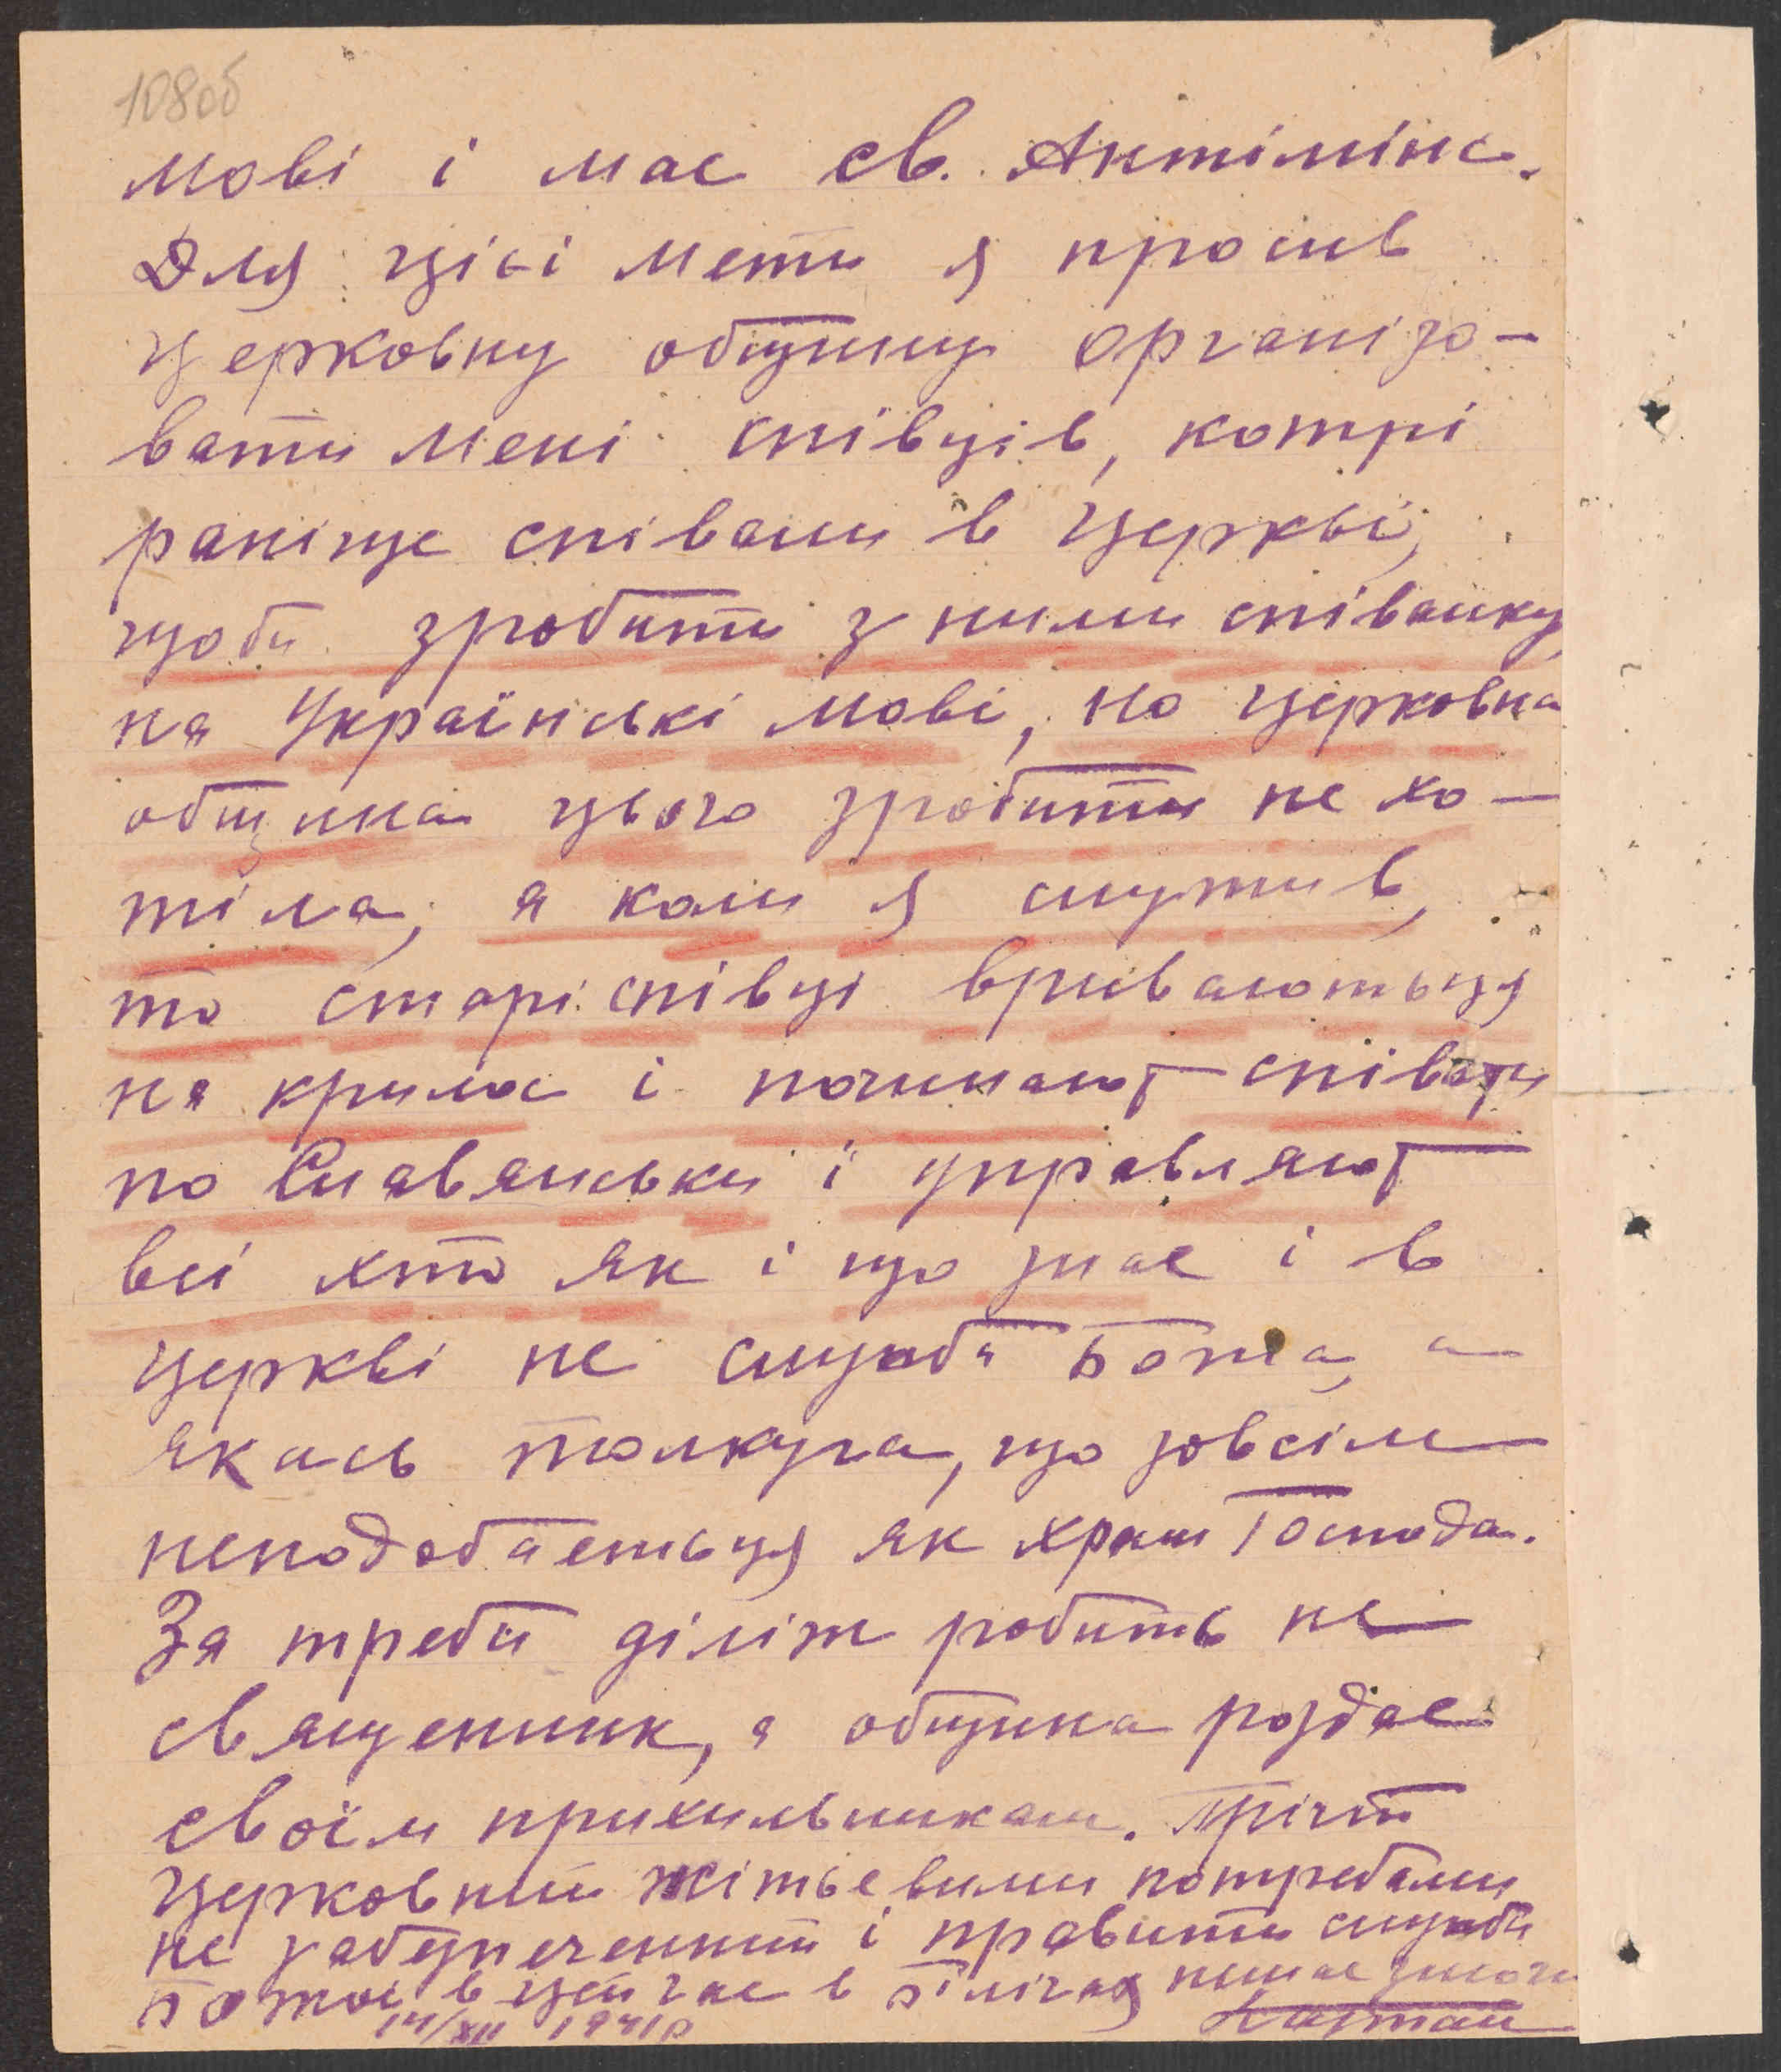 108об
мові і має св. Антімінс.
Для цієі мети я просив
церковну общину организо-
вати мені співців, котрі
раніще співали в церкві,
щоби зробити з ними співанку
на Українські мові, но церковна
община цього зробити не хо-
тіла, а коли я служив,
то старі співці вриваються
на крилос і починают співати
по Славянськи і управляют
всі хто як і що знає і в
церкві не служба Божа, а
якась толкуча, що зовсім
неподобається як храм Господа.
За треби діліж робить не
священник, а община роздає
своїм прихильникам. Прічт
церковний жітьевими потребами
не забезпеченний і правити служби
Божої в цей час в Білічах немає змоги
14/XII 1941р